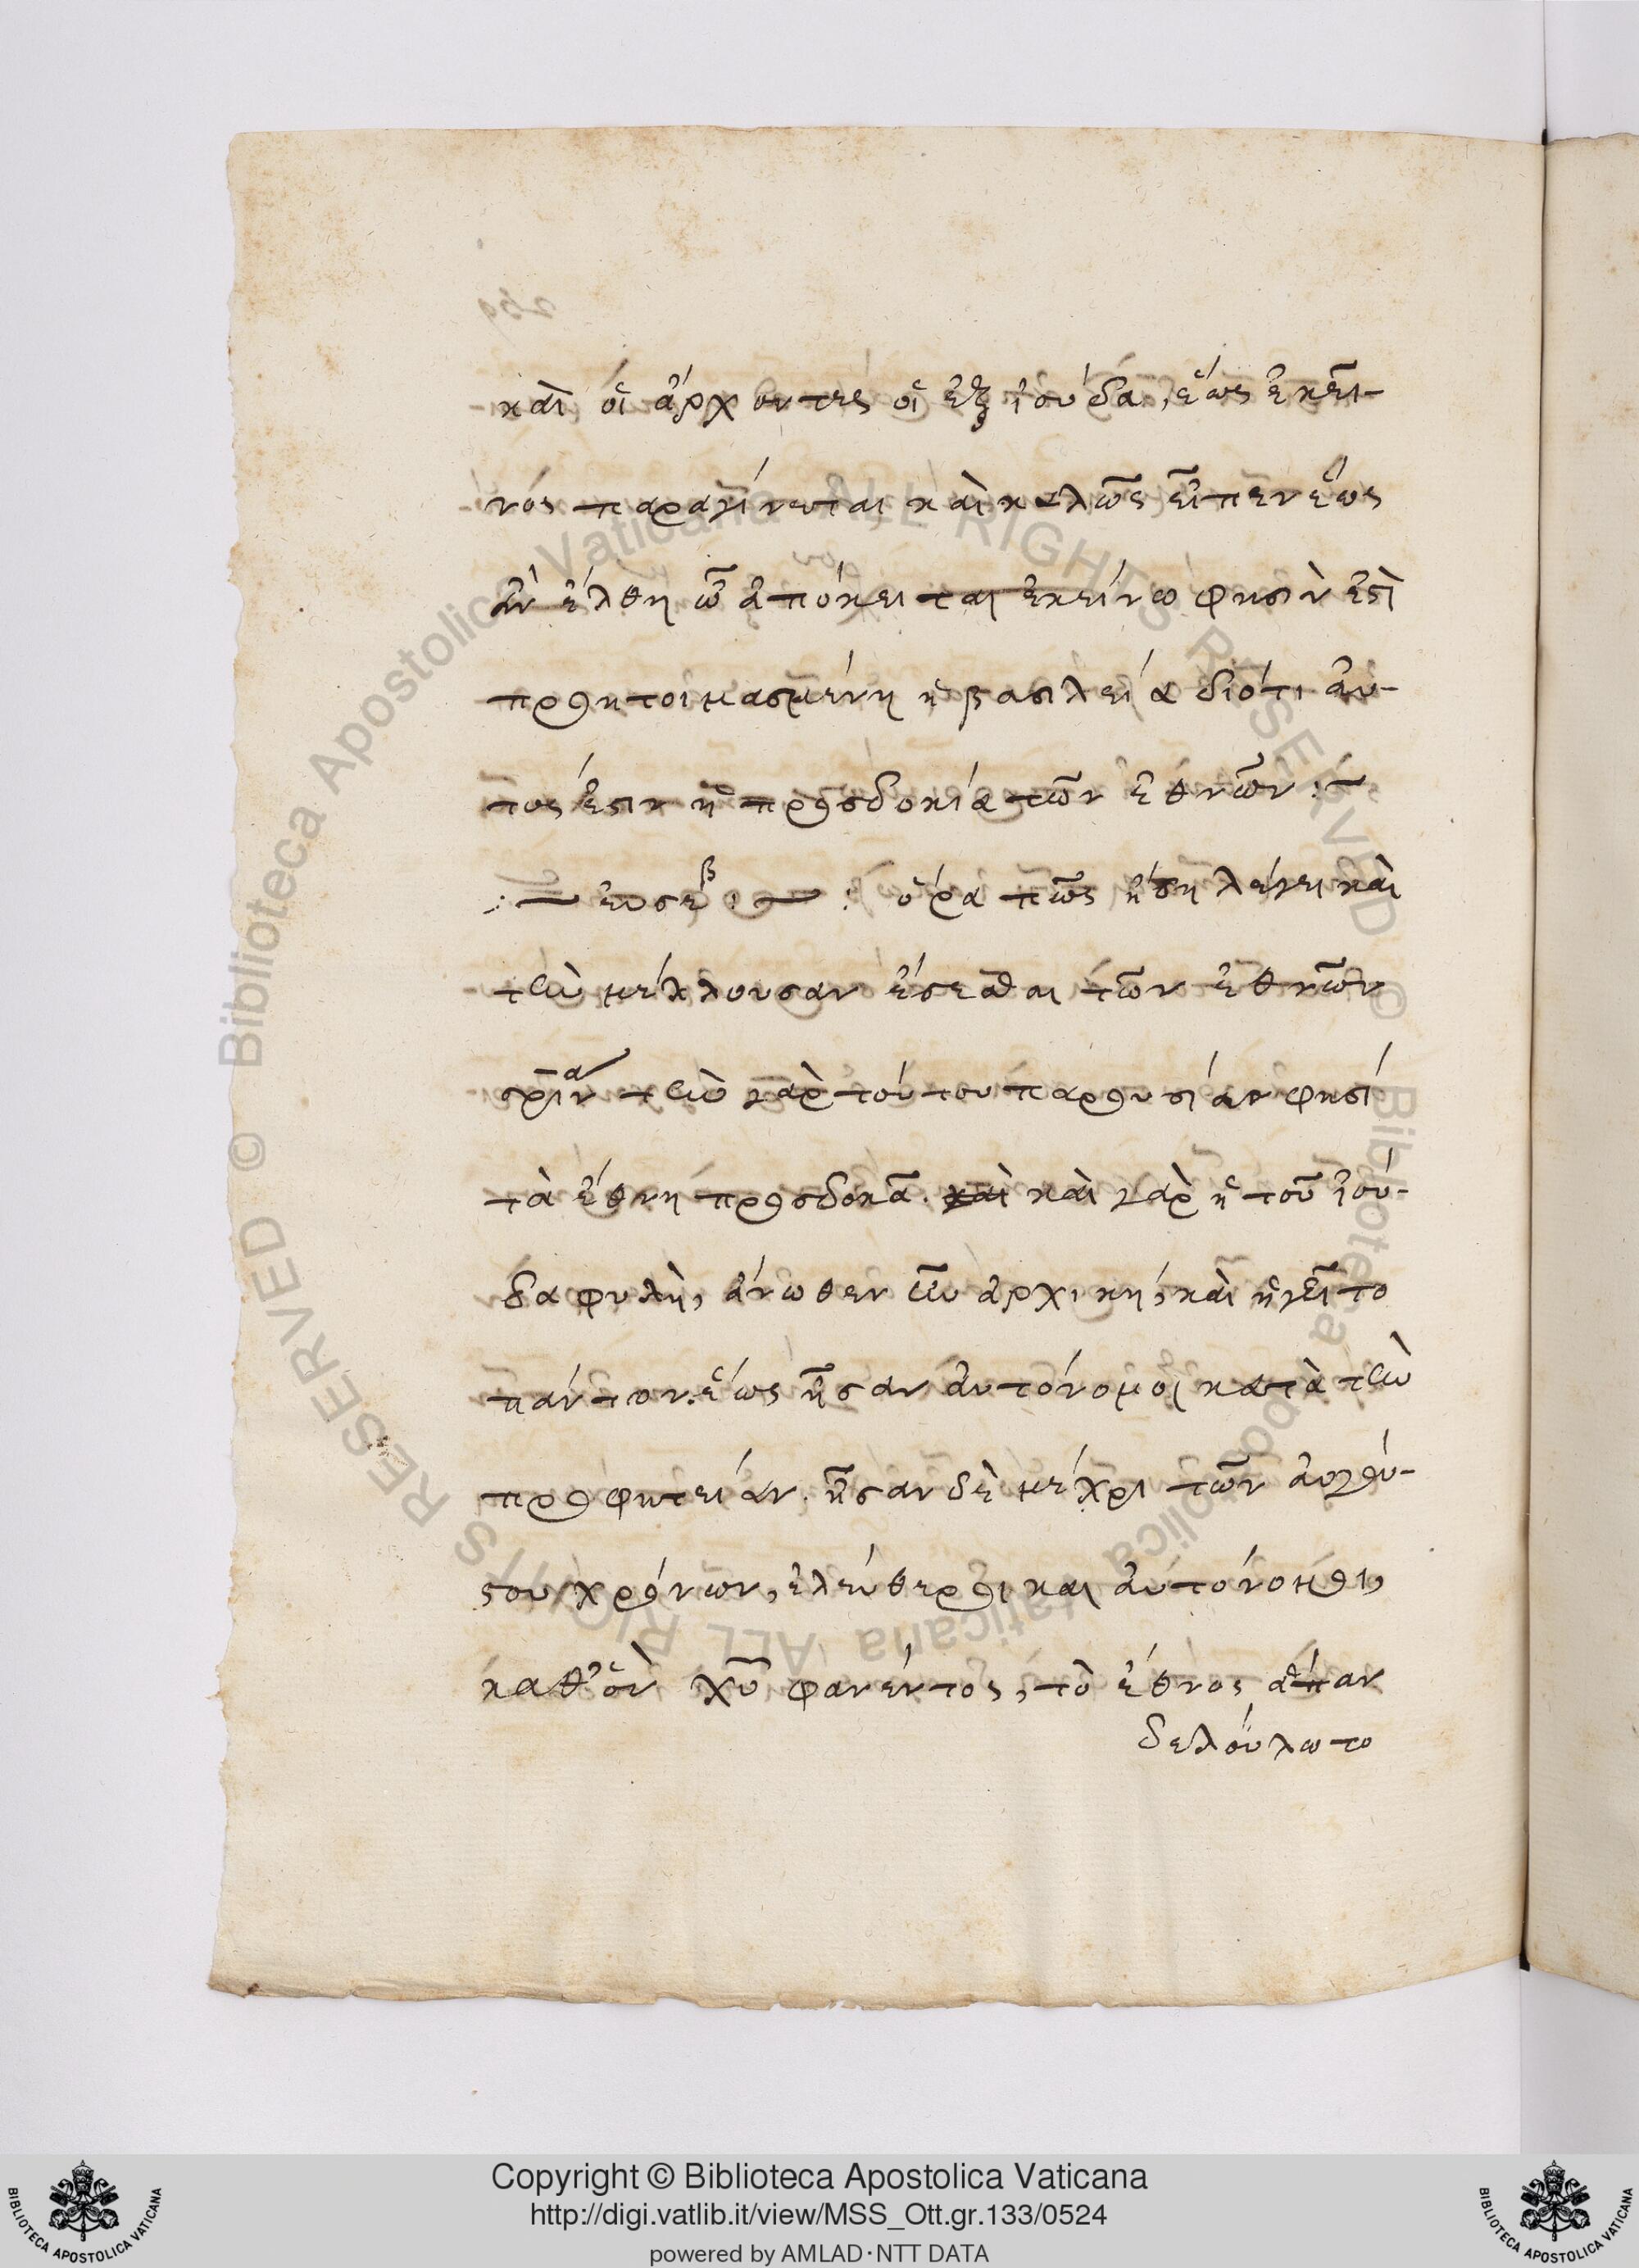 καὶ οἱ ἄρχοντες οἱ ἐξ ἰούδα, ἕως ἐκεῖ-
νος παραγίνεται καὶ καλῶς εἶπεν ἕως
ἂν ἔλθη ᾧ ἀπόκειται ἐκείνω φησὶν ἐστὶ
προητοιμασμένη ἡ βασιλεία διότι αὐ-
τος ἐστιν ἡ προσδοκία τῶν ἐθνῶν :~
:~ ευσεβ :~ : ὅρα πῶς ἤδη λέγει καὶ
τὴν μέλλουσαν ἔσεσθαι τῶν ἐθνῶν
σρίαν τὴν γὰρ τούτου παρουσίαν φησί
τὰ ἔθνη προσδοκᾶ. καὶ καὶ γὰρ ἡ τοῦ ἰού-
δα φυλὴ, ἄνωθεν ἦν ἀρχικὴ, καὶ ἡγεῖτο
πάντων. ἕως ἦσαν αὐτόνομοι κατὰ τὴν
προφητείαν. ἦσαν δὲ μέχρι τῶν αὐγού-
στου χρόνων, ἐλεύθεροι και αὐτόνομοι,
καθ' ὃν χυ φανέντος, τὸ ἔθνος ἅπαν
δεδούλωτο
Copyright © Biblioteca Apostolica Vaticana
http://digi.vatlib.it/view/MSS_Ott.gr.133/0524
powered by AMLAD · NTT DATA
BIBLIOTECA APOSTOLICA VATICANA
BIBLIOTECA APOSTOLICA VATICANA